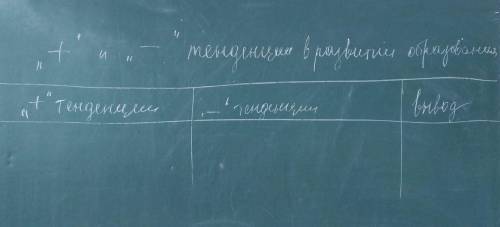 „+“ и „—“ тенденции в развитии образования
„+“ тенденции „—“ тенденции вывод